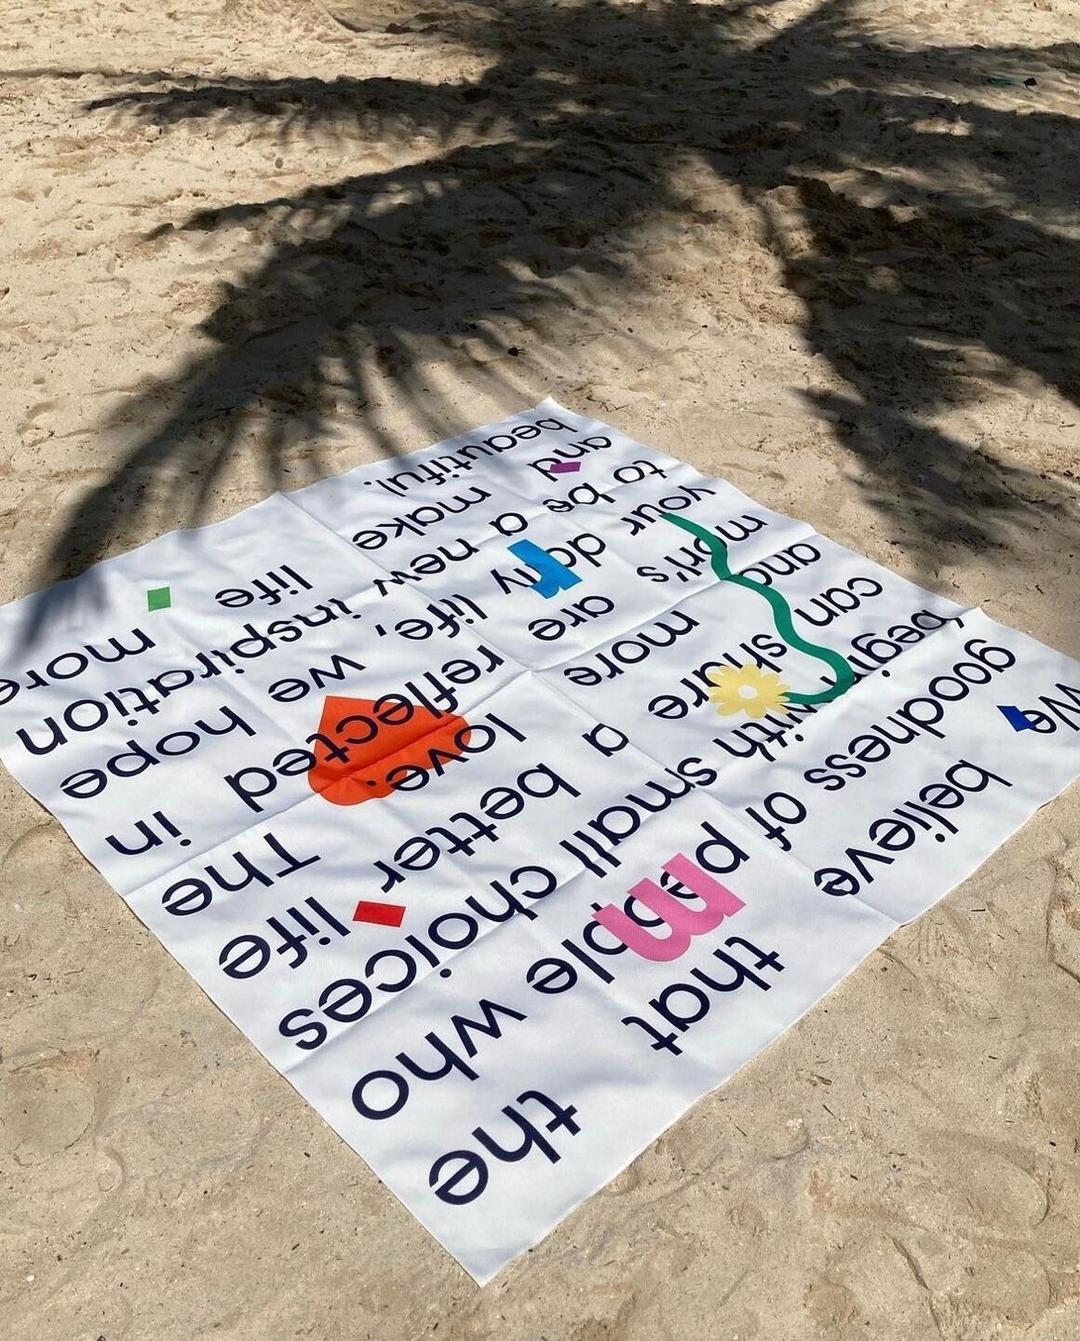 We believe that the
goodness of people who
begin with small choices
can share a better life
and more love. The
mori's are reflected in
your daily life, we hope
to be a new inspiration
and make life more
beautiful.